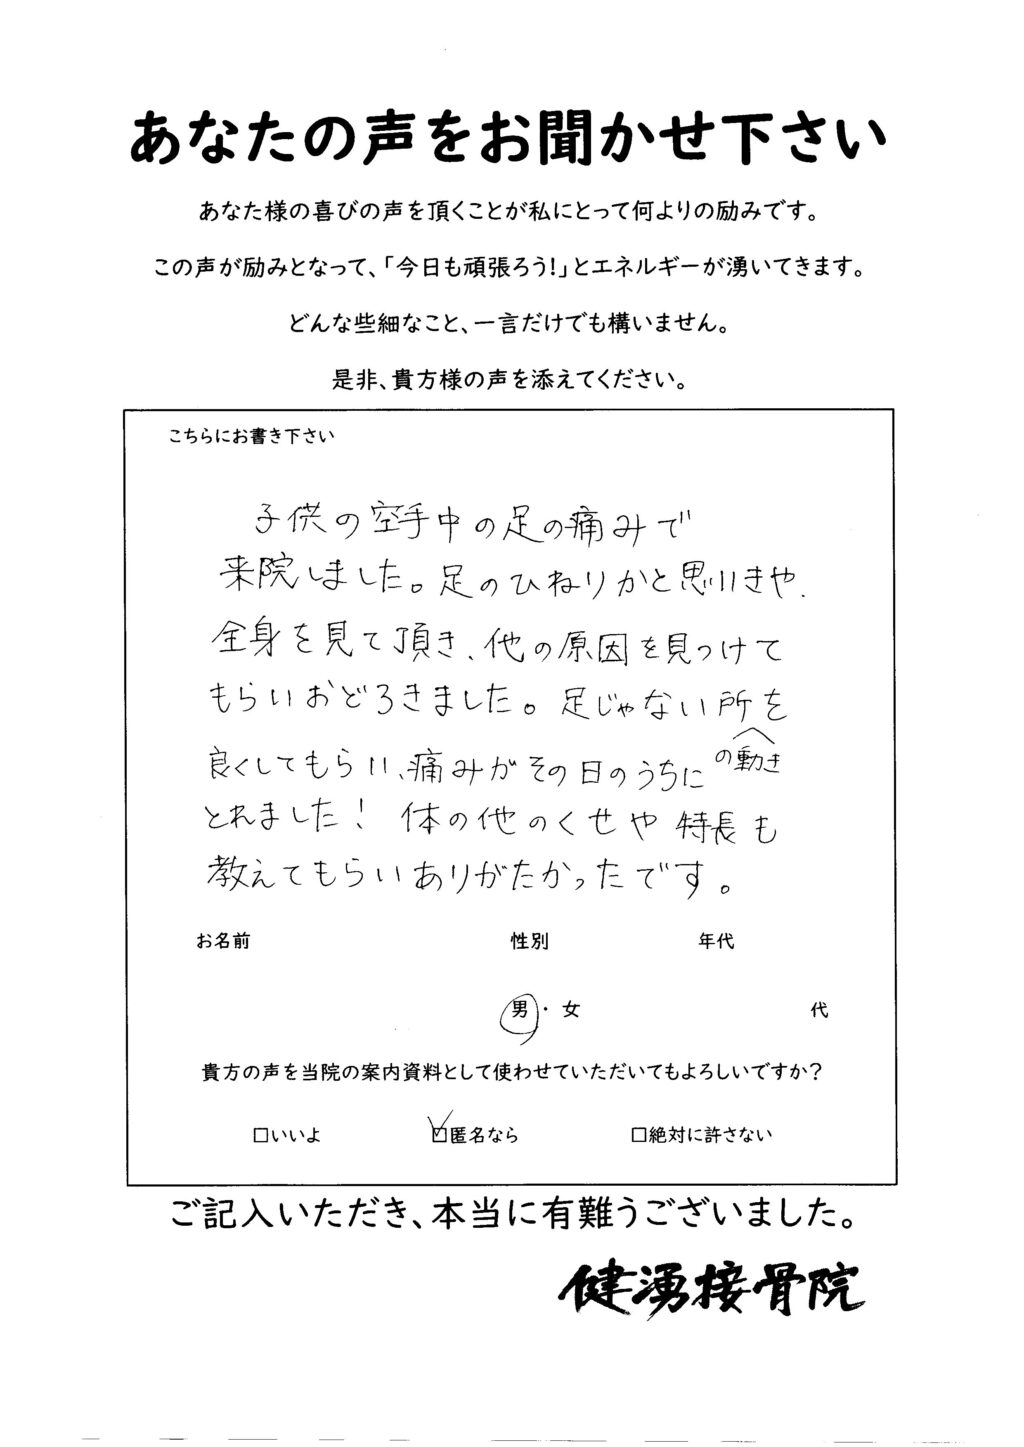 あなたの声をお聞かせ下さい
あなた様の喜びの声を頂くことが私にとって何よりの励みです。
この声が励みとなって、「今日も頑張ろう!」とエネルギーが湧いてきます。
どんな些細なこと、一言だけでも構いません。
是非、貴方様の声を添えてください。
こちらにお書き下さい
子供の空手中の足の痛みで
来院しました。足のひねりかと思いきや、
全身を見て頂き、他の原因を見つけて
もらいおどろきました。足じゃない所を
の動き
良くしてもらい、痛みがその日のうちに
とれました! 体の他のくせや特長も
教えてもらいありがたかったです。
お名前 性別 年代
男・女 代
貴方の声を当院の案内資料として使わせていただいてもよろしいですか?
□いいよ ☑匿名なら □絶対に許さない
ご記入いただき、本当に有難うございました。
健湧接骨院